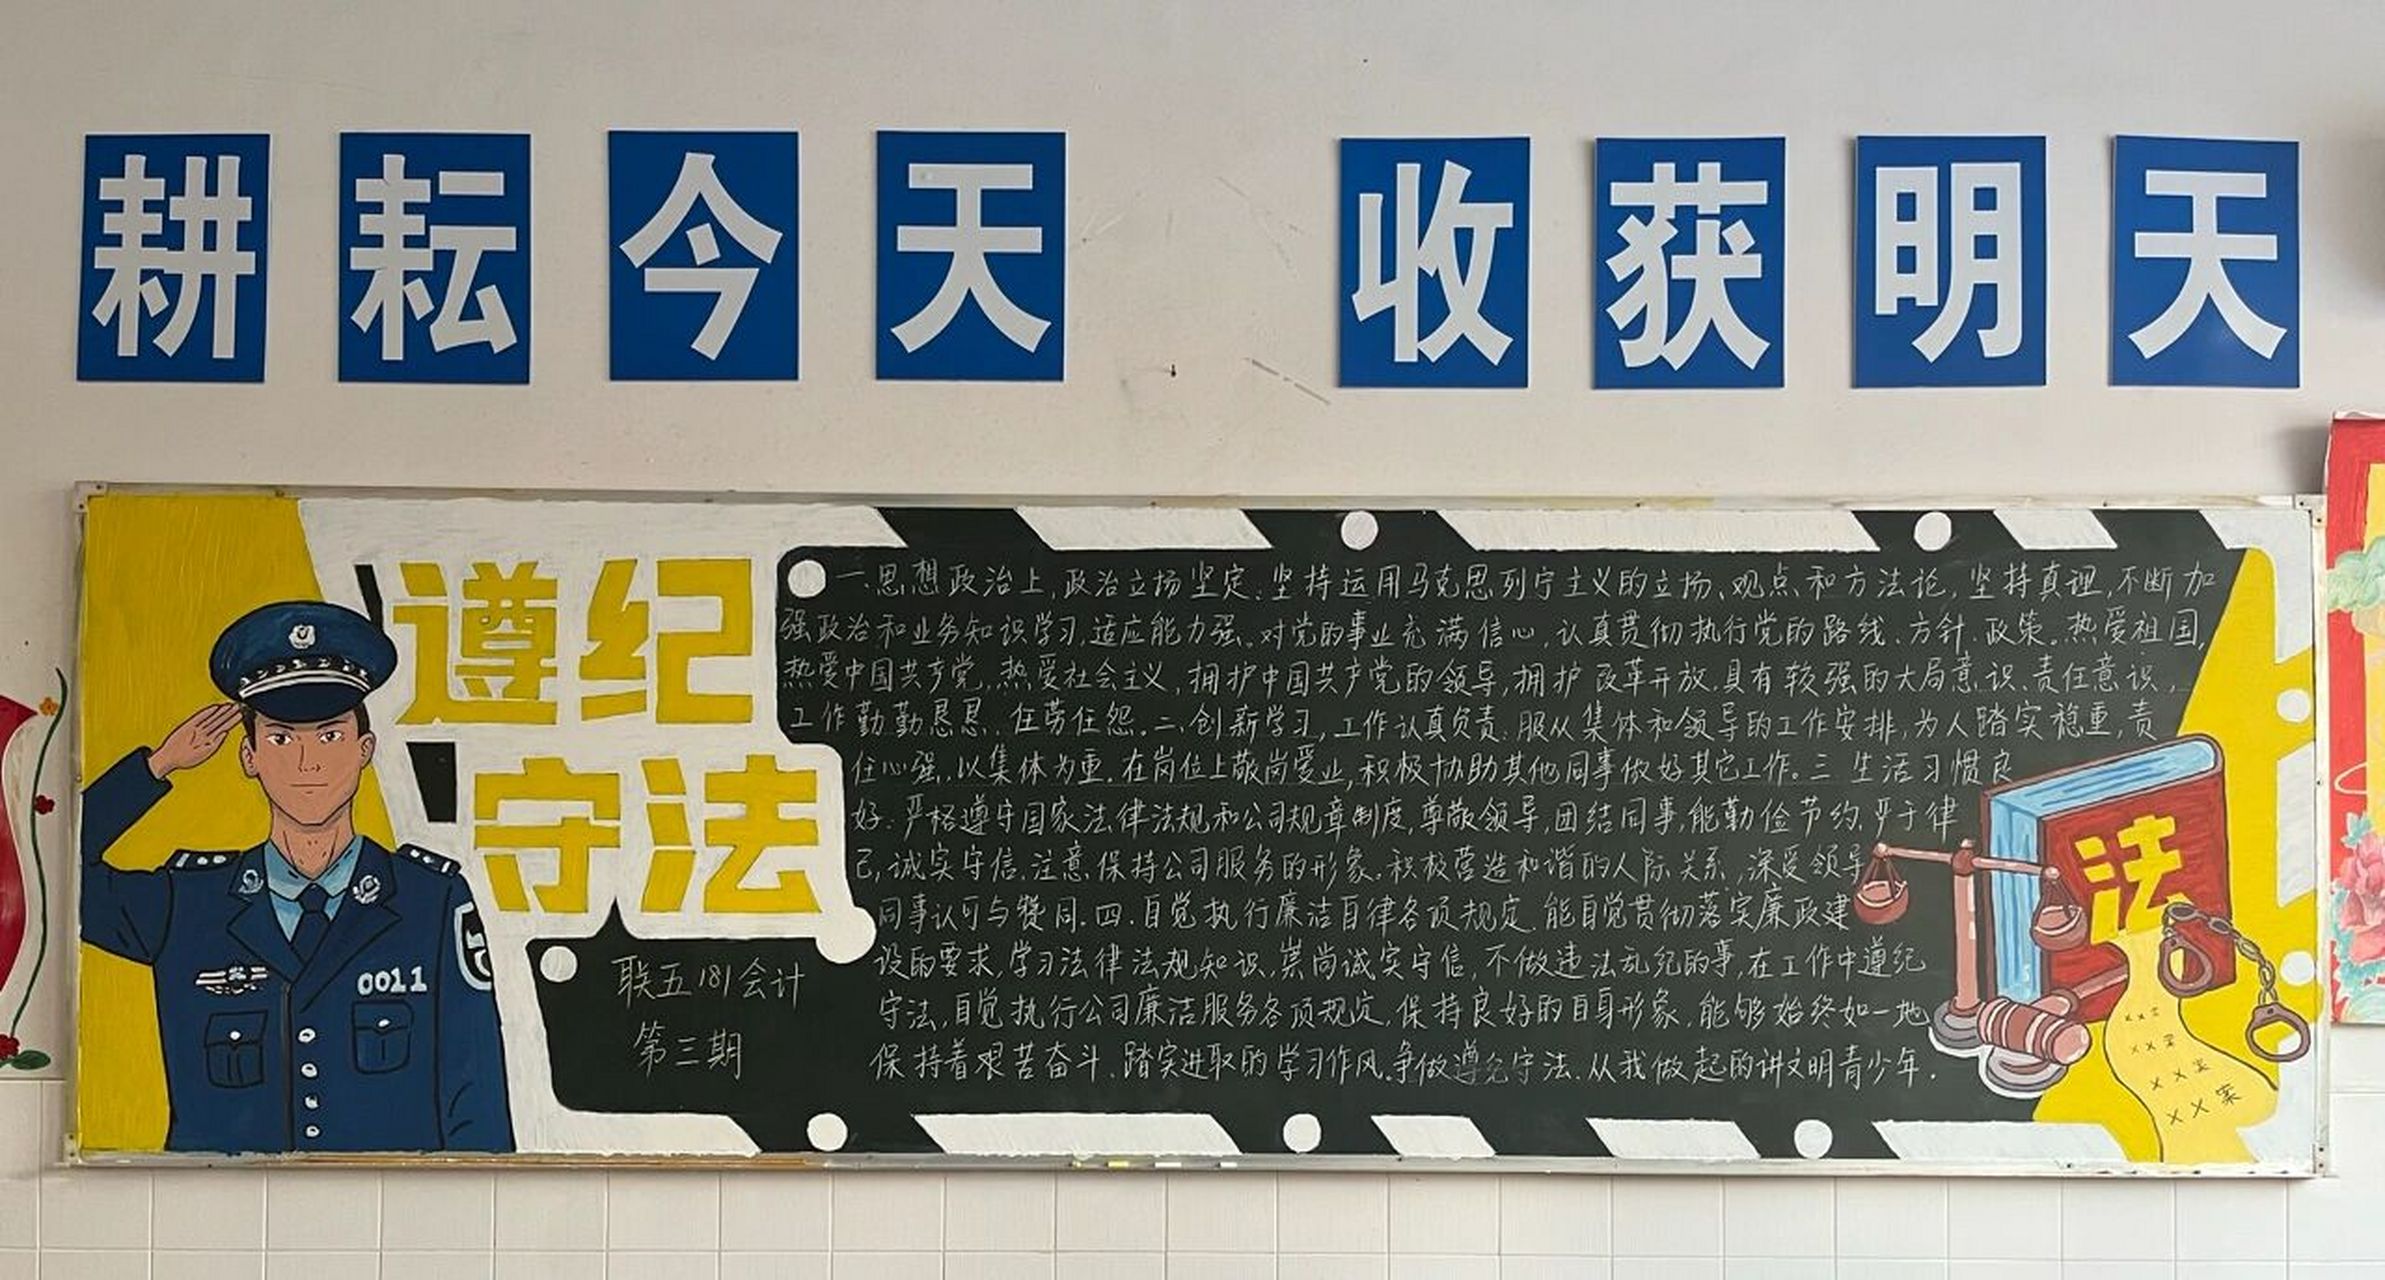 耕耘今天 收获明天
遵纪
守法
一、思想政治上,政治立场坚定:坚持运用马克思列宁主义的立场、观点和方法论,坚持真理,不断加
强政治和业务知识学习,适应能力强。对党的事业充满信心,认真贯彻执行党的路线、方针、政策。热爱祖国,
热爱中国共产党,热爱社会主义,拥护中国共产党的领导,拥护改革开放.具有较强的大局意识、责任意识,
工作勤勤恳恳、任劳任怨。二、创新学习,工作认真负责:服从集体和领导的工作安排,为人踏实稳重,责
任心强,以集体为重.在岗位上敬岗爱业,积极协助其他同事做好其它工作。三 生活习惯良
好:严格遵守国家法律法规和公司规章制度,尊敬领导,团结同事,能勤俭节约,严于律
己,诚实守信.注意保持公司服务的形象.积极营造和谐的人际关系,深受领导
同事认可与赞同.四.自觉执行廉洁自律各项规定.能自觉贯彻落实廉政建
设的要求,学习法律法规知识,崇尚诚实守信,不做违法乱纪的事,在工作中遵纪
守法,自觉执行公司廉洁服务各项规定,保持良好的自身形象.能够始终如一地
保持着艰苦奋斗、踏实进取的学习作风.争做遵纪守法、从我做起的讲文明青少年.
联五181会计
第三期
0011
法
××案
××案
××案
××案